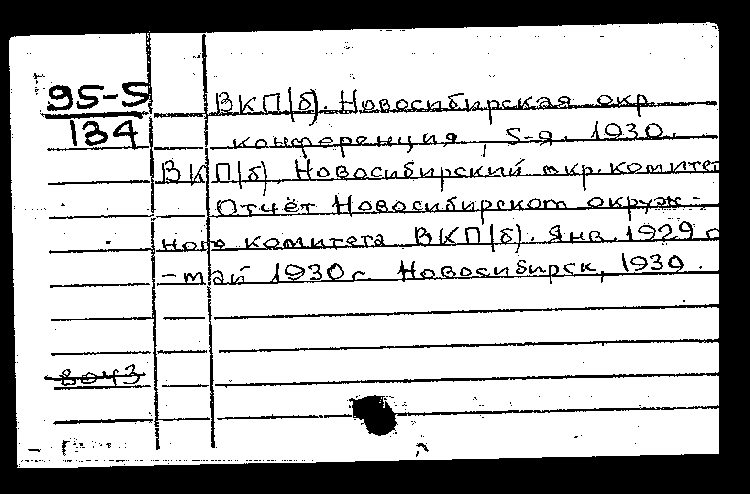 95-5
134
ВКП(б). Новосибирская окр.
конференция, 5-я. 1930.
ВКП(б) Новосибирский окр. комитет
Отчёт Новосибирского окруж-
ного комитета ВКП(б). Янв. 1929 г
-май 1930 г. Новосибирск, 1930.
8043